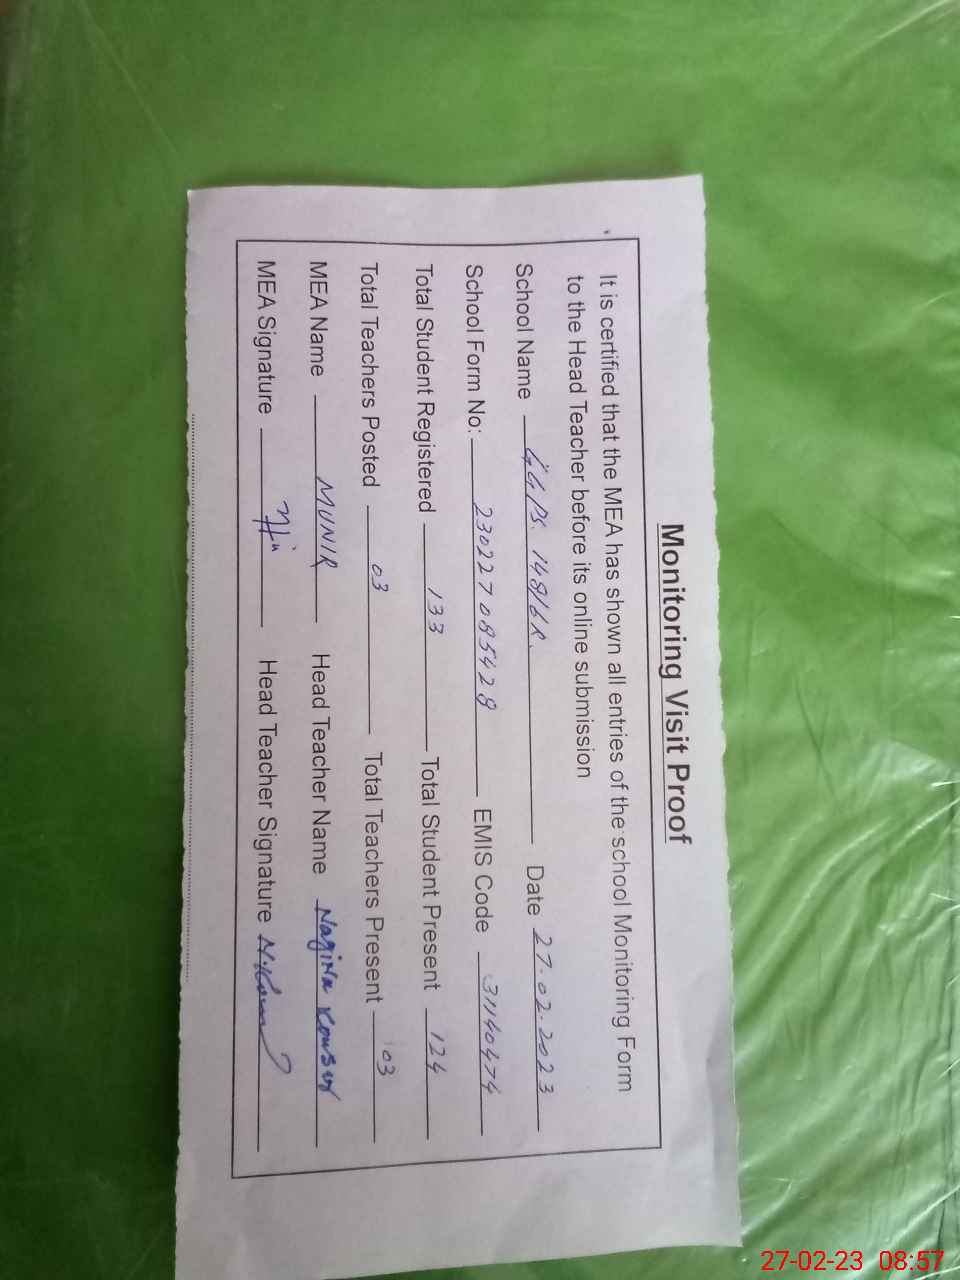 Monitoring Visit Proof
It is certified that the MEA has shown all entries of the school Monitoring Form
to the Head Teacher before its online submission
School Name GGPS. 148/6R. Date 27.02.2023
School Form No: 230227085428 EMIS Code 31140474
Total Student Registered 133 Total Student Present 124
Total Teachers Posted 03 Total Teachers Present 03
MEA Name MUNIR Head Teacher Name Nagina Kousar
MEA Signature Head Teacher Signature
27-02-23 08:57